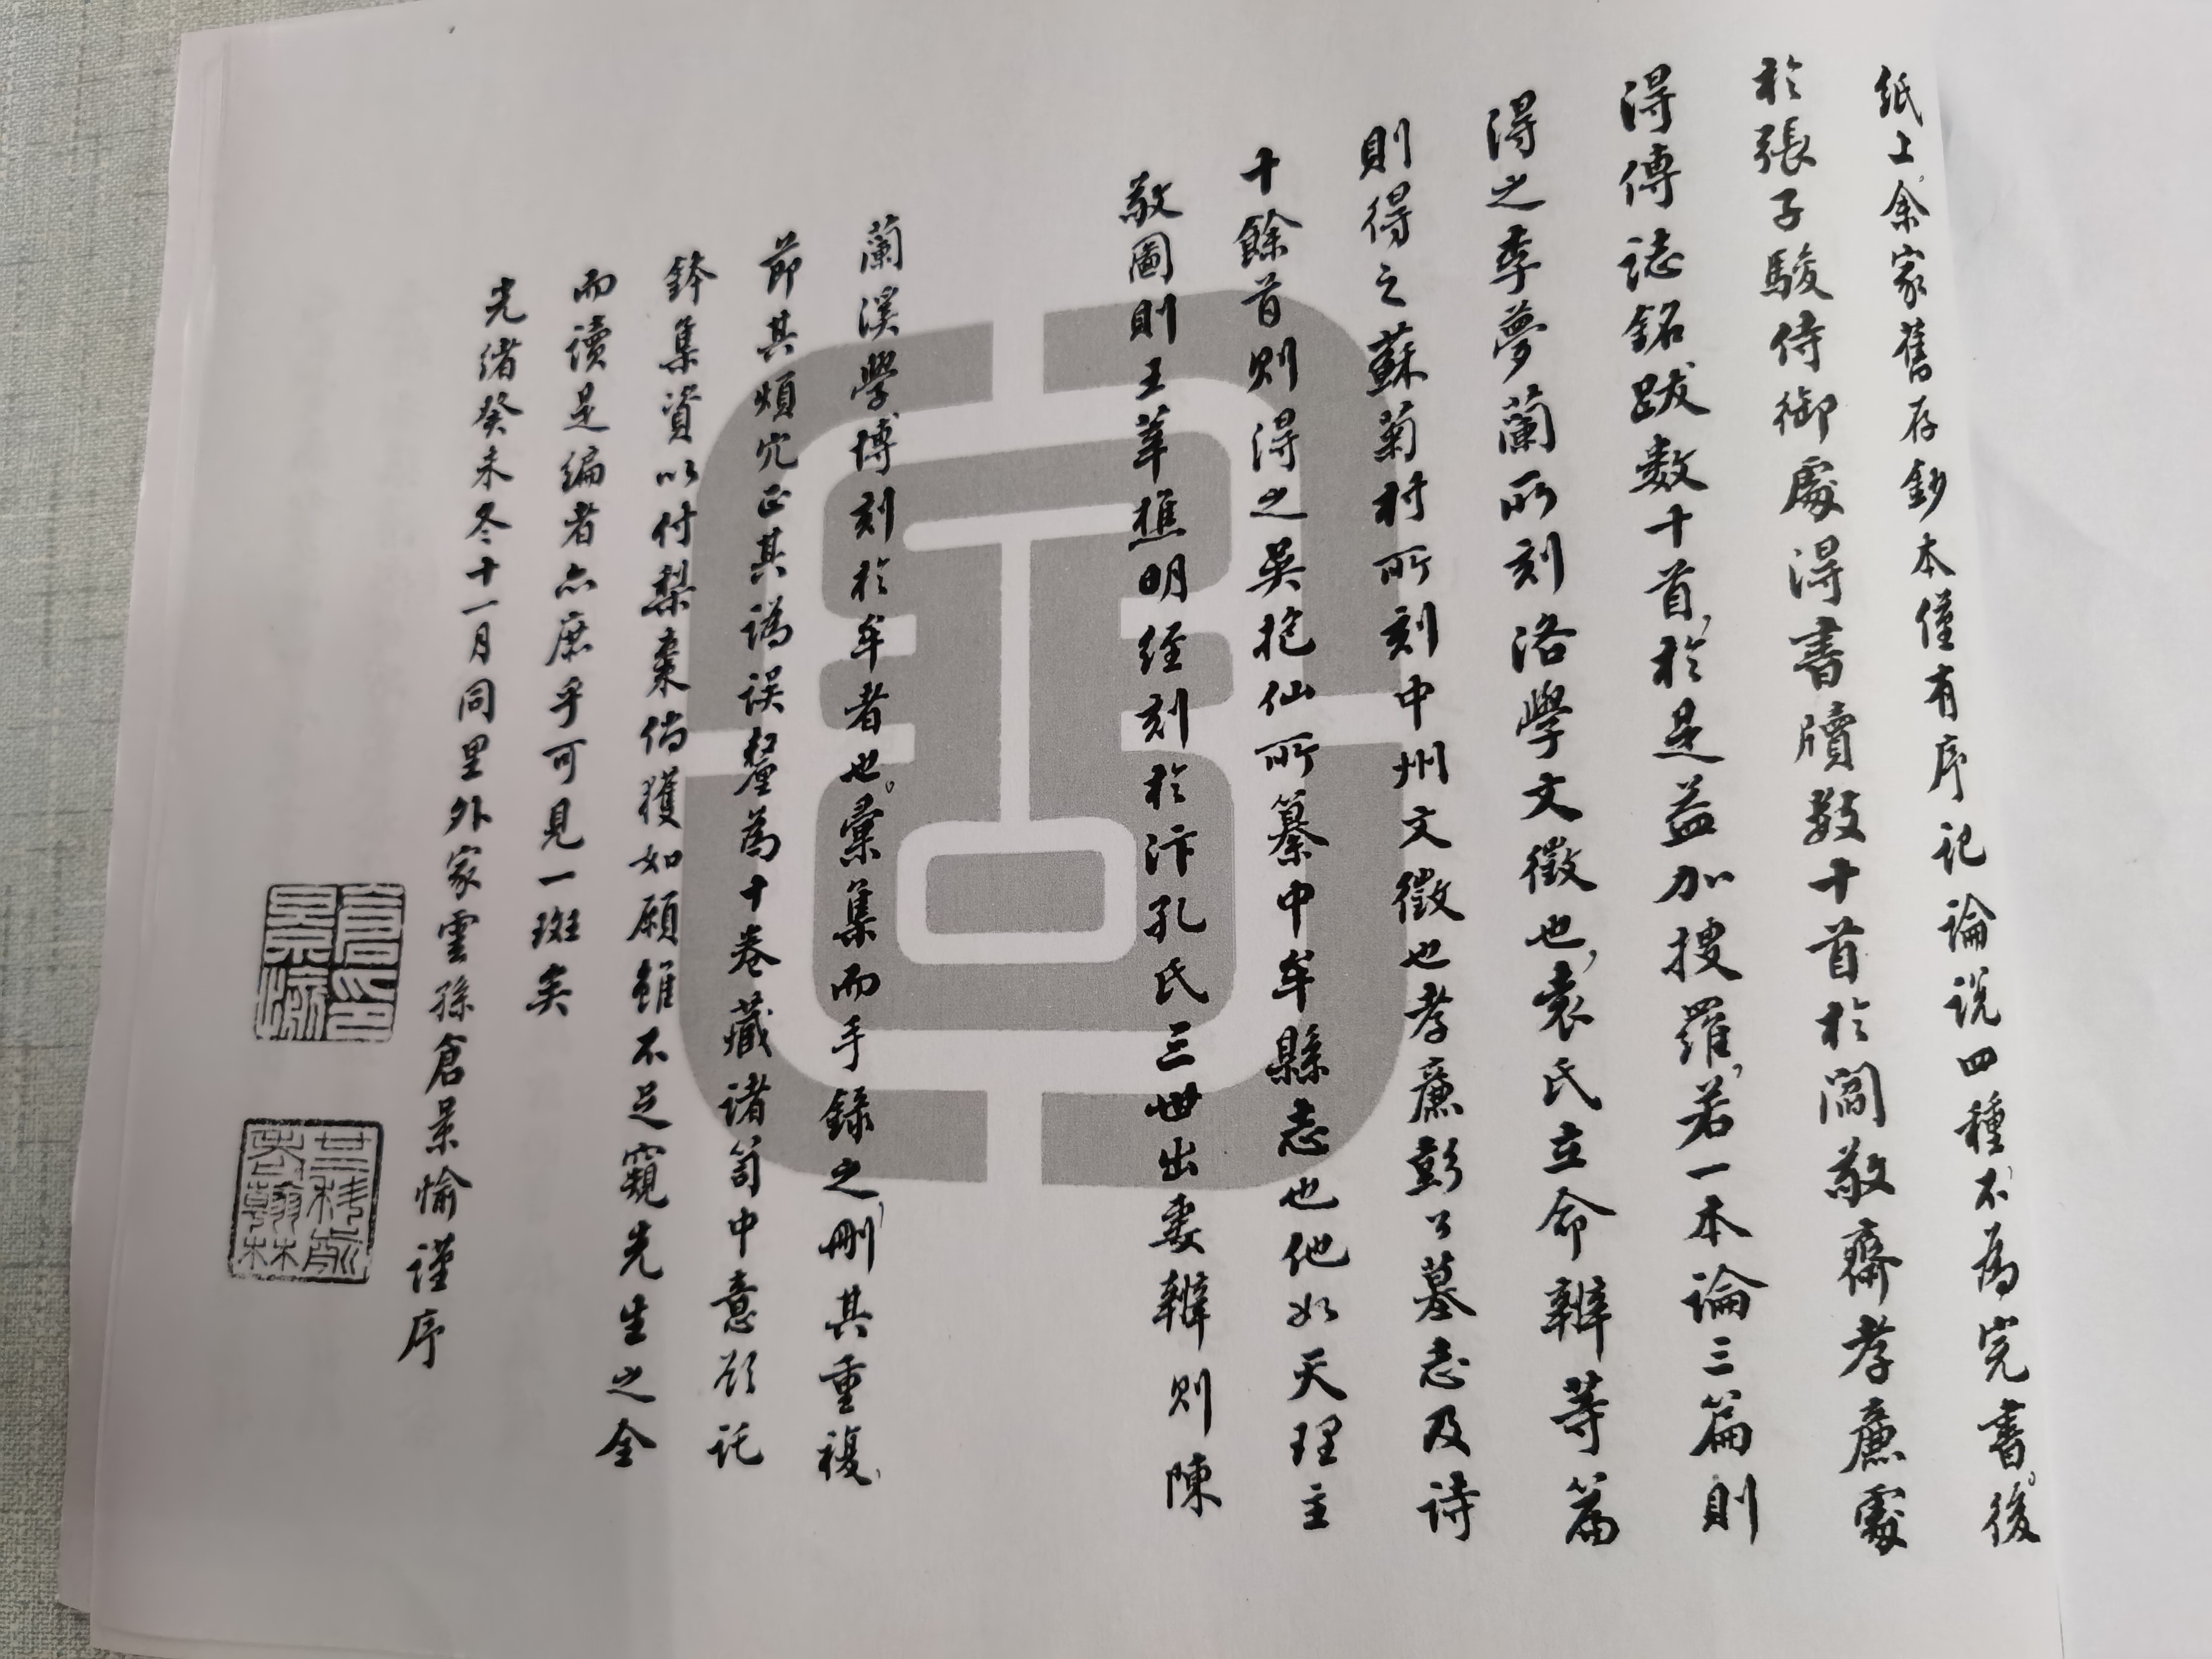 紙上余家舊存鈔本僅有序記論說四種不為完書。後
於張子駿侍御處得書牘數十首於閻敬齋孝廉處
得傳誌銘跋數十首，於是益加搜羅，若一本論三篇則
得之李夢蘭所刻洛學文徵也，袁氏立命辨等篇
則得之蘇菊村所刻中州文徵也孝廉彭公墓志及詩
十餘首則得之吳抱仙所纂中牟縣志也他如天理主
敬圖則王莘樵明經刻於汴孔氏三世出妻辨則陳
蘭溪學博刻於牟者也。彙集而手錄之，刪其重複，
節其煩冗正其譌誤釐為十卷藏諸笥中意欲託
鉢集資以付梨棗倘獲如願雖不足窺先生之全
而讀是編者亦庶乎可見一斑矣
光緒癸未冬十一月同里外家雲孫倉景愉謹序
倉景愉印